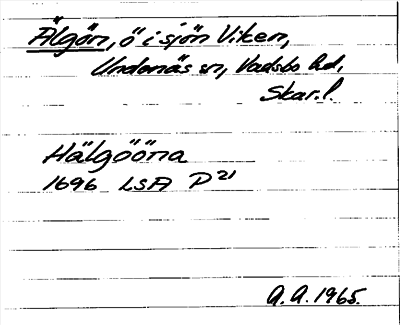 Älgön, ö i sjön Viken,
Undenäs sn, Vadsbo hd,
Skar.l.
Hälgööna
1696 LSA P21
A.A. 1965.